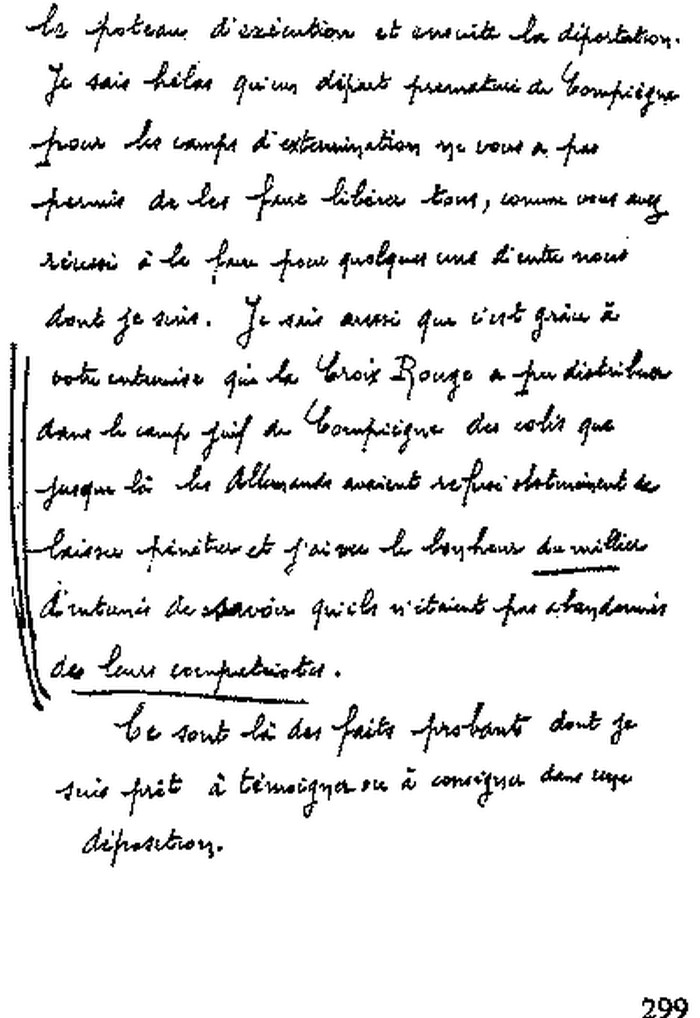 le poteau d'exécution et ensuite la déportation.
Je sais hélas qu'un départ prématuré de Compiègne
pour les camps d'extermination ne vous a pas
permis de les faire libérer tous, comme vous avez
réussi à le faire pour quelques uns d'entre nous
dont je suis. Je sais aussi que c'est grâce à
votre entremise que la Croix Rouge a pu distribuer
dans le camp juif de Compiègne des colis que
jusque là les Allemands avaient refusé obstinément de
laisser pénétrer et j'ai vu le bonheur du millier
d'internés de savoir qu'ils n'étaient pas abandonnés
de leurs compatriotes.
Ce sont là des faits probants dont je
suis prêt à témoigner ou à consigner dans une
déposition.
299